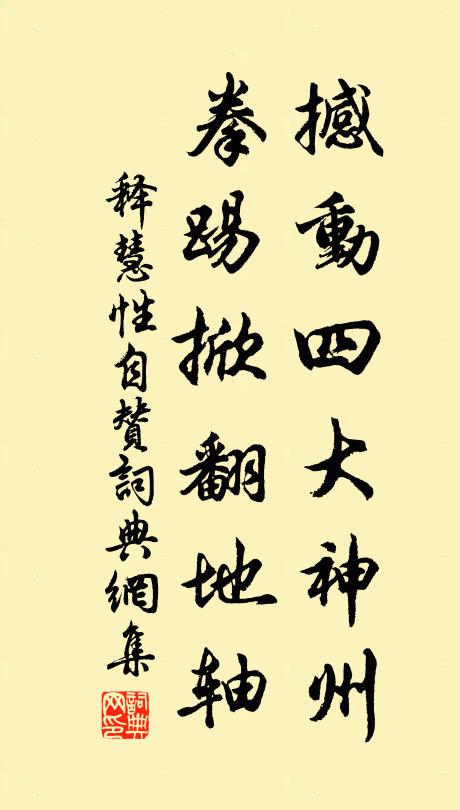 撼動四大神州
拳踢掀翻地軸
释慧性自赞詞典網集
詞典网印